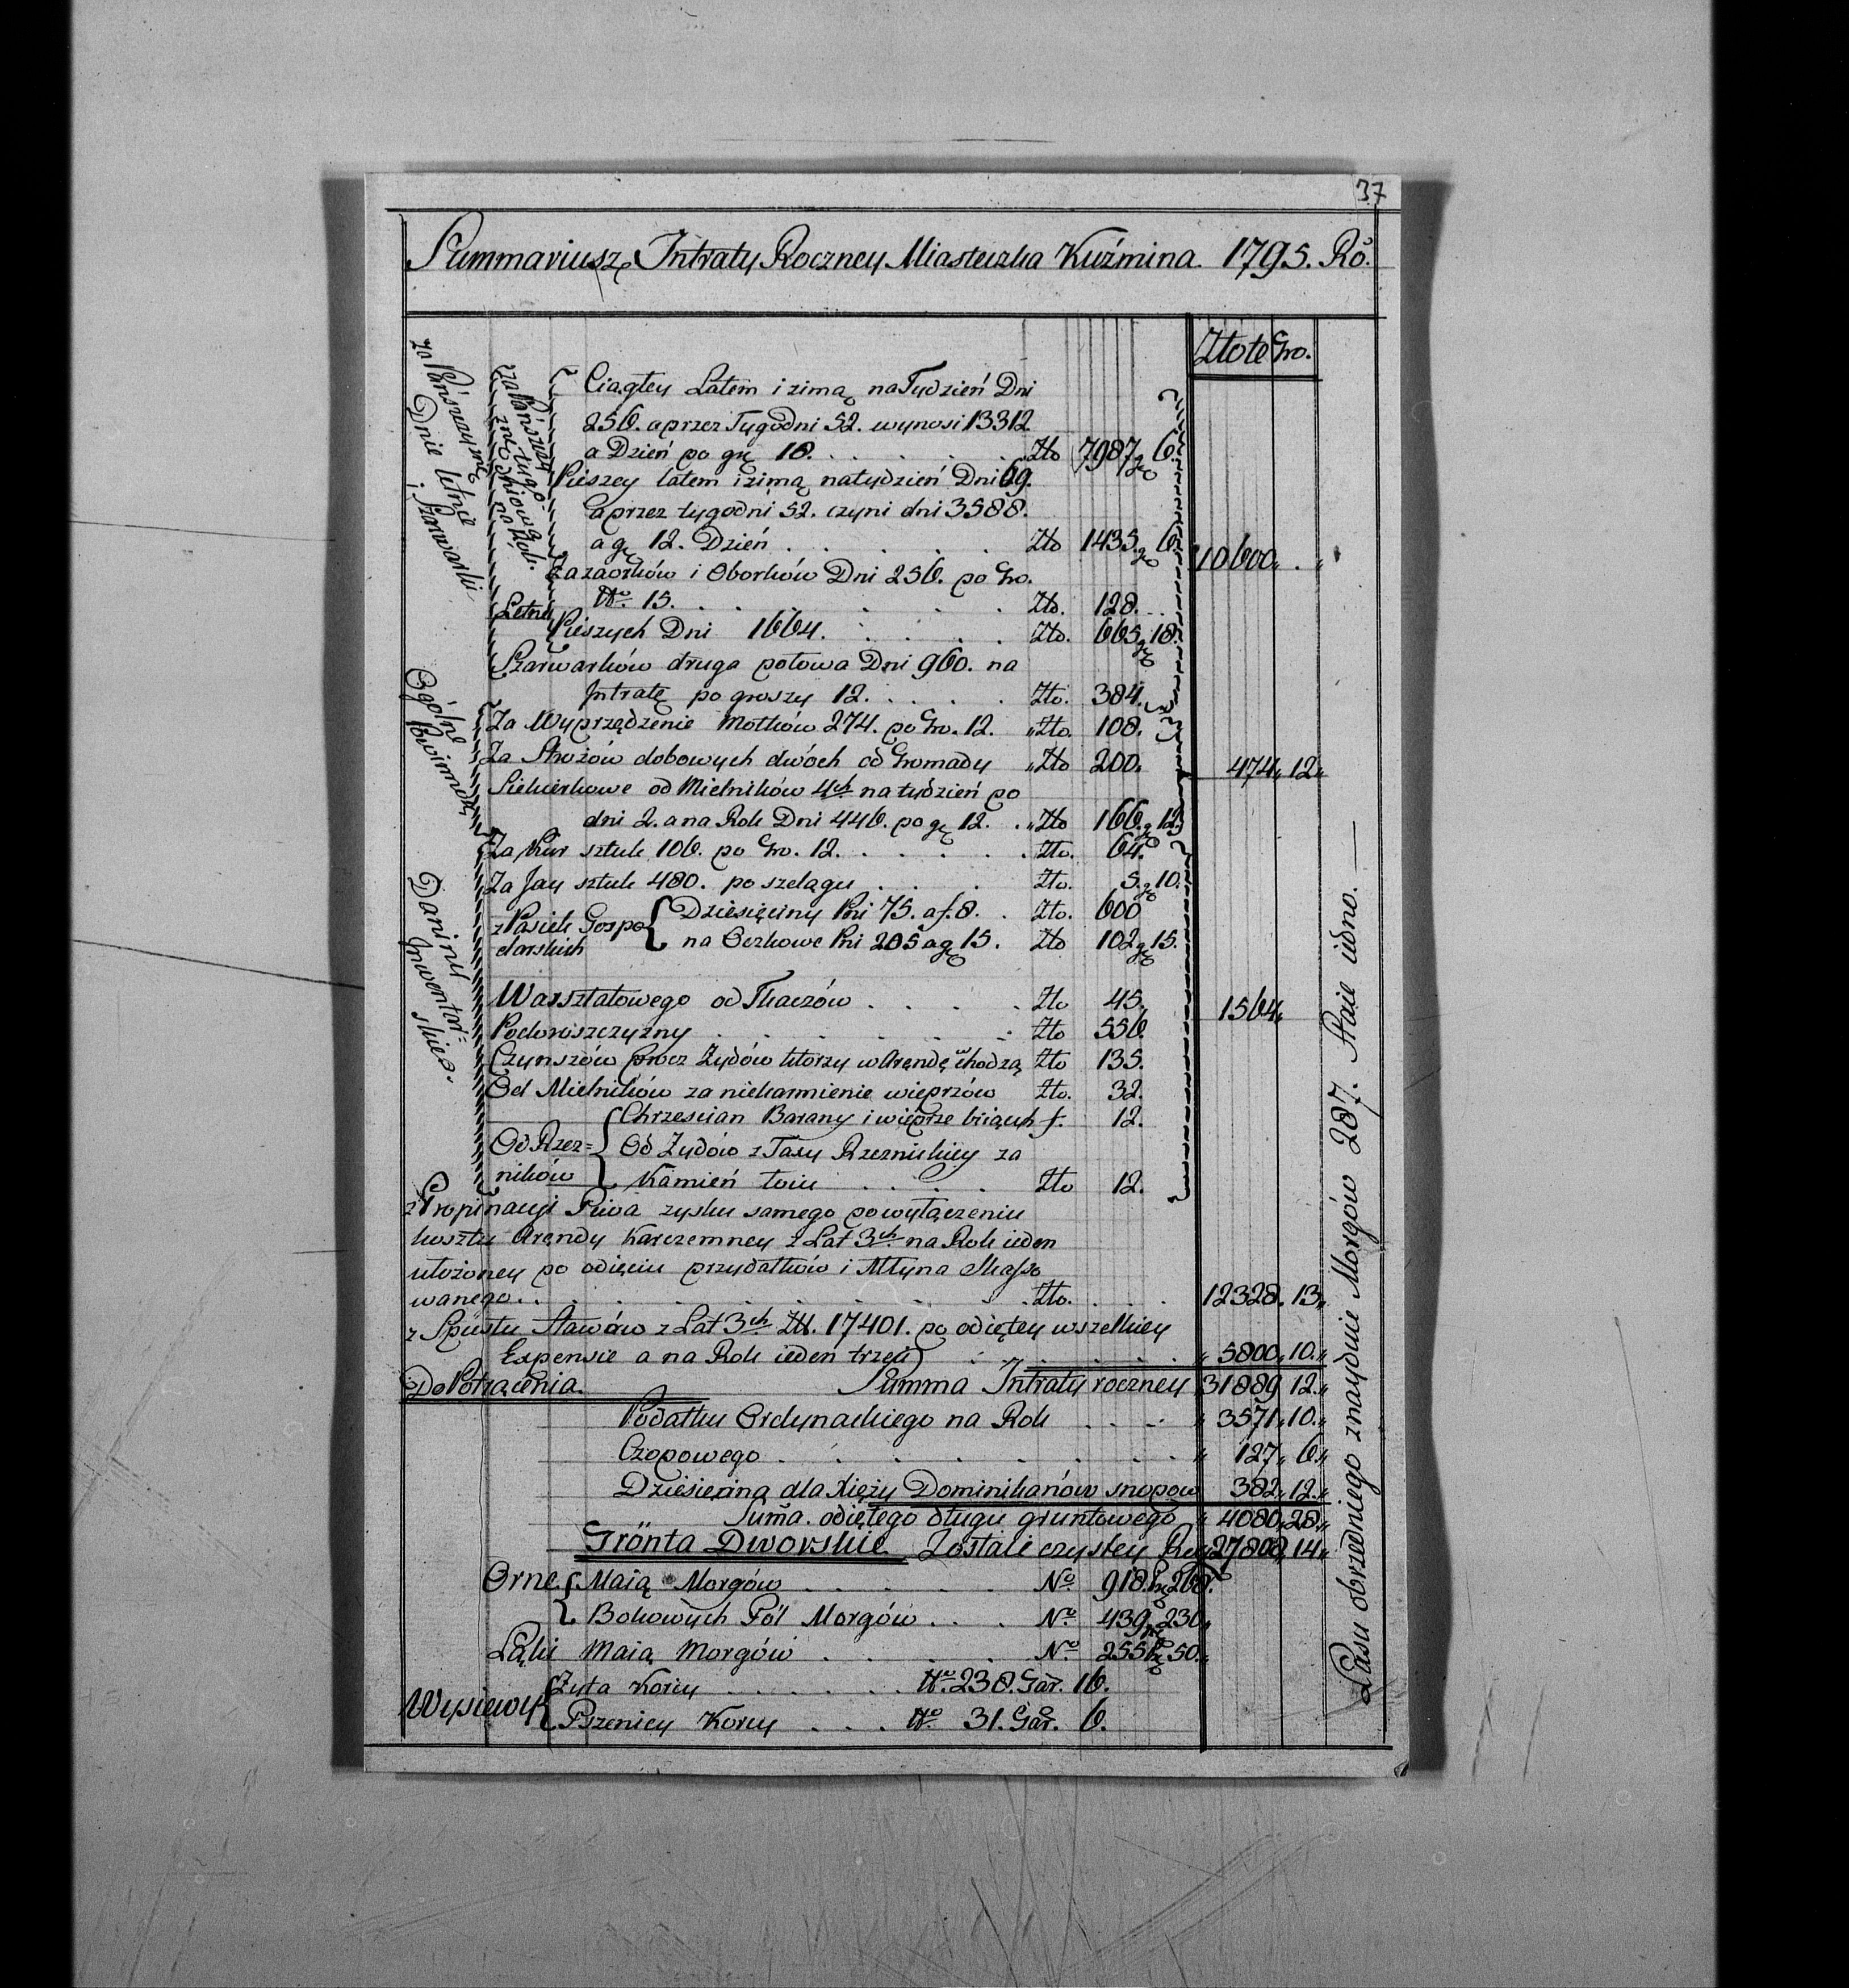 37
Summariusz Intraty Roczney Miasteczka Kuźmina. 1795. Ro.
Złote Gro.
za Pańszczyznę
Dnie letnie
i Szarwarki
za Pańszczy
znę tygo-
dniową
na Rok.
Ciągłey Latem i zimą na Tydzień Dni
256. a przez Tygodni 52. wynosi 13312
a Dzień po gr. 18. . . . . . Zło 7987 gr 6.
Pieszey latem i zimą na tydzień Dni 69.
a przez tygodni 52. czyni dni 3588.
a gr 12. Dzień . . . . . Zło 1435 gr 6.
10600 „ . „
Zazaorków i Oborków Dni 256. po Gro.
No. 15. . . . . . . Zło. 128. . .
Letnie
Pieszych Dni 1664. . . . . Zło. 665 gr 18.
Szarwarków druga połowa Dni 960. na
Intratę po groszy 12. . . . . Zło. 384.
Ogólne
Powinność
Za Wyprzędzenie Motków 274. po Gro. 12. „ Zło. 108.
Za Stróżów dobowych dwóch od Gromady „ Zło 200.
474 „ 12 „
Siekierkowe od Mielników 4ch na tydzień po
dni 2. a na Rok Dni 446. po gr 12. . „ Zło 166. gr 12.
Daniny
Inwentar=
skie.
Za Kur sztuk 106. po Gro. 12. . . . . . Zło. 64.
Za Jay sztuk 480. po szelągu . . . Zło. 5. gr 10.
z Pasiek Gospo
darskich
Dziesięciny Pni 75. a f. 8. . Zło. 600
na Oczkowe Pni 205 a gr 15. Zło 102 gr 15.
Warsztatowego od Tkaczów . . . . Zło 45.
1564 „
Podoroszczyzny . . . . . . Zło 556.
Czynszów procz Żydów ktorzy w Arendę wchodzą Zło 135.
Od Mielników za niekarmienie wieprzów Zło. 32.
Od Rzez=
ników
Chrzescian Barany i wieprze biiących f. 12.
Od Żydów z Taxy Rzeznickiey za
Kamień łoiu . . . . Zło 12.
z Propinacyi Piwa zysku samego po wyłączeniu
kosztu Arendy Karczemney z Lat 3ch na Rok ieden
ułożoney po odięciu przydatków i Młyna Skasso
wanego. . . . . . . . . . Zło. . . . 12328. 13 „
z Spustu Stawów z Lat 3ch Zł. 17401. po odiętey wszelkiey
Expensie a na Rok ieden trzeci . . . . . . „ 5800 „ 10. „
Do Potrącenia. Summa Intraty roczney 31889 12. „
Podatku Ordynackiego na Rok . . . „ 3571 „ 10. „
Czopowego . . . . . . . . „ 127 „ 6 „
Dziesięciną dla Xięży Dominikanów snopow 382 „ 12. „
Suma. odiętego długu gruntowego „ 4080 „ 28. „
Grönta Dworskie Zostaie czystey 27808 „ 14 „
Orne. Maią Morgów . . . . . . No. 918. 268.
Bokowych Pól Morgów . . . No. 439 230 „
Łąki Maią Morgów . . . . . No. 255 50. „
Wysiewy
Żyta Korcy . . . . . . No. 238. Gar. 16.
Pszenicy Korcy . . . No. 31. Gar. 6.
Lasu obrzedniego znayduie Morgów 287. Staie iedno. —